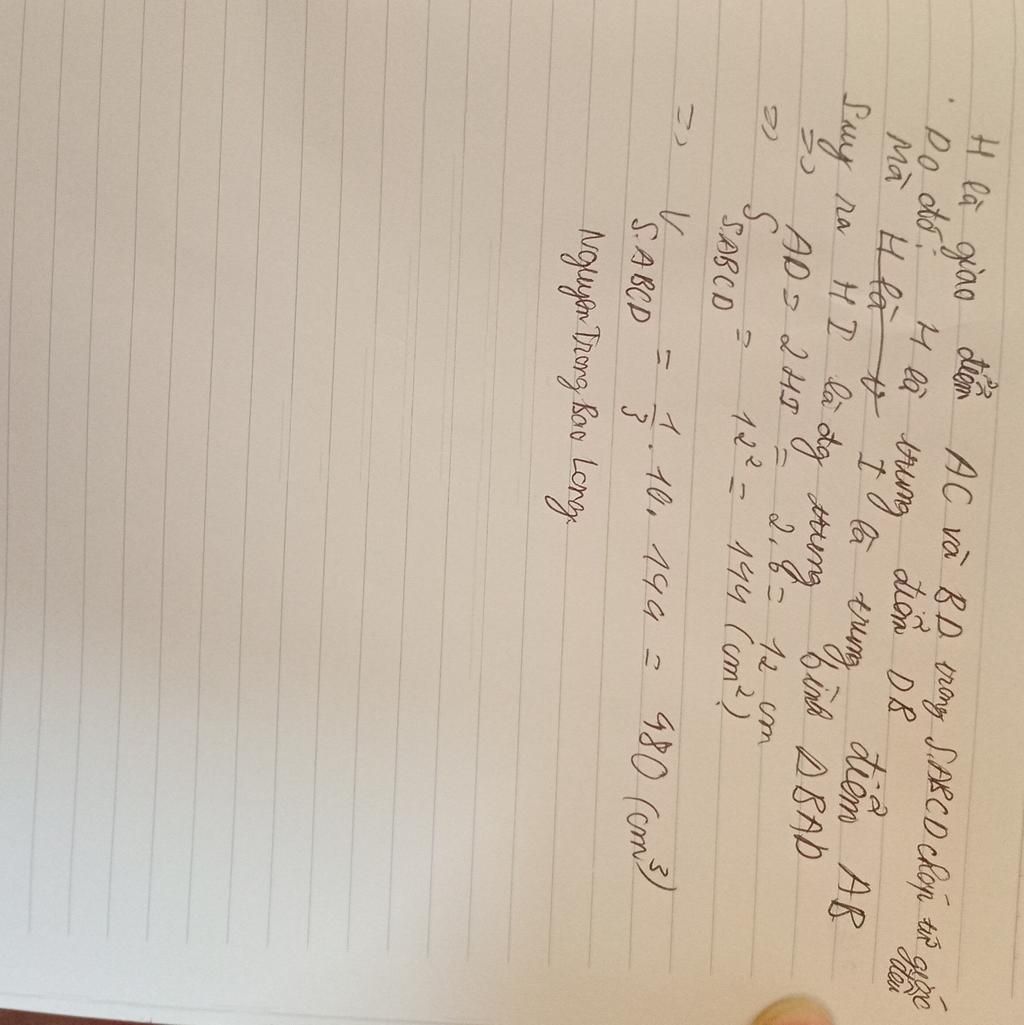 H là giao điểm AC và BD trong S.ABCD chóp tứ giác đều
. Do đó: H là trung điểm DB
Mà H là tr I là trung điểm AB
Suy ra HI là đg trung bình ΔBAD
=> AD = 2HI = 2.6 = 12 cm
=> S SABCD = 12² = 144 (cm²)
=> V S.ABCD = 1/3 . 10. 144 = 480 (cm³)
Nguyễn Trong Bao Long.